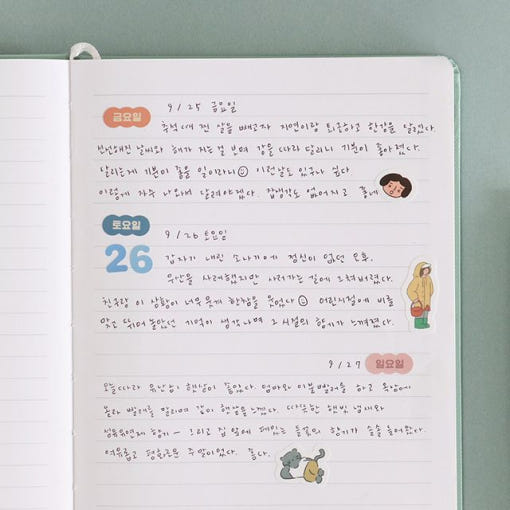 9/25 금요일
금요일
추석 때 찐 살을 빼고자 지연이랑 퇴근하고 한강을 달렸다.
선선해진 날씨와 해가 지는 걸 보며 강을 따라 달리니 기분이 좋아졌다.
달리는게 기분이 좋을 일이라니 이런날도 있구나 싶다.
이렇게 자주 나와서 달려야겠다. 잡생각도 없어지고 좋네
토요일
26
9/26 토요일
갑자기 내린 소나기에 정신이 없던 오후.
우산을 사려했지만 사러가는 길에 그쳐버렸다.
친구랑 이 상황이 너무 웃겨 한참을 웃었다 어린시절에 비를
맞고 뛰어놀았던 기억이 생각나며 그 시절의 향기가 느껴졌다.
9/27 일요일
오늘따라 유난히 햇살이 좋았다. 엄마와 이불빨래를 하고 옥상에
올라 빨래를 말리며 같이 햇살을 느꼈다. 따뜻한 햇빛 냄새와
섬유유연제 향기 — 그리고 집 앞에 피어있는 들꽃의 향기가 솔솔 들어왔다.
여유롭고 평화로운 주말이었다. 좋다.